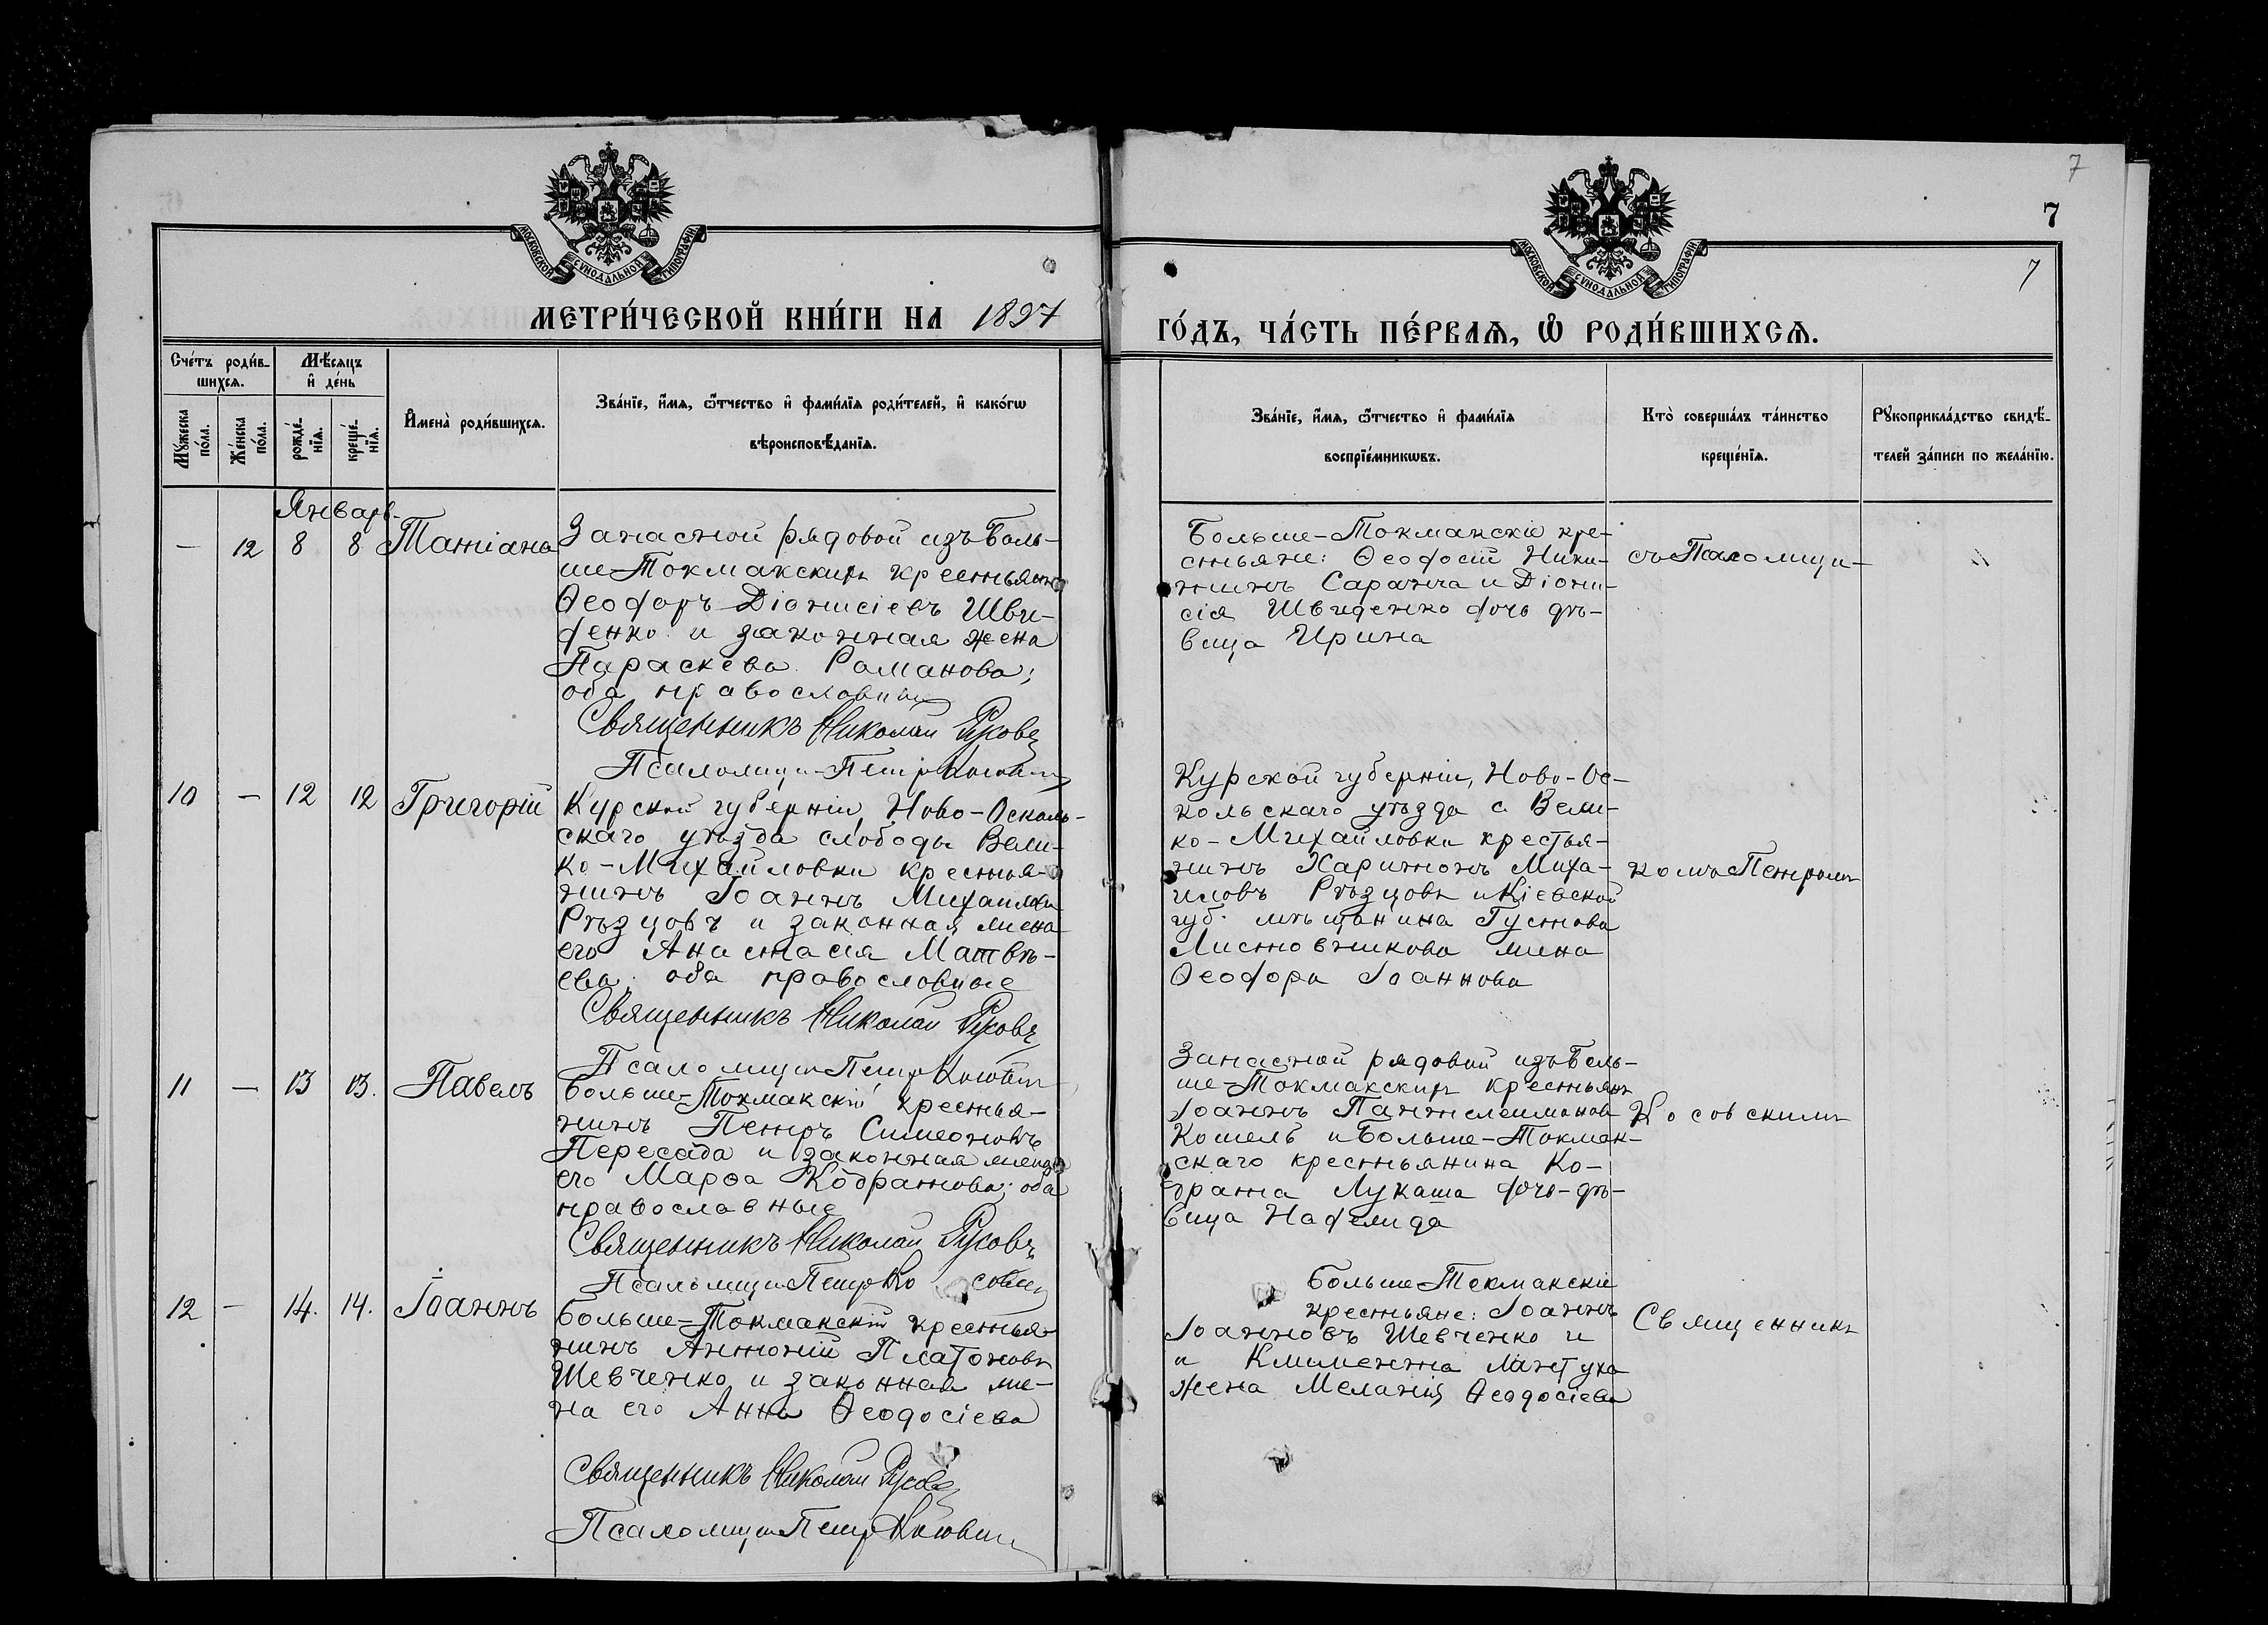 7
7
7
МОСКОВСКОЙ СѴНОДАЛЬНОЙ ТИПОГРАФІИ
МОСКОВСКОЙ СѴНОДАЛЬНОЙ ТИПОГРАФІИ
МЕТРИ́ЧЕСКОЙ КНИ́ГИ НА 1897
ГО́ДЪ, ЧА́СТЬ ПЕ́РВАѦ, Ѿ РОДИ́ВШИХСѦ.
Сче́тъ роди́в-
шихсѧ.
Мѣ́сяцъ
и҆ де́нь
Мꙋ́жеска
по́ла.
Же́нска
по́ла.
рожде́-
нїѧ.
креще́-
нїѧ.
И҆мена̀ роди́вшихсѧ.
Зва́нїе, и҆́мѧ, ѻ҆́тчество и҆ фами́лїѧ роди́телей, и҆ како́гѡ
вѣроисповѣ́данїѧ.
Зва́нїе, и҆́мѧ, ѻ҆́тчество и҆ фами́лїѧ
воспрїе́мникѡвъ.
Кто̀ соверша́лъ та́инство
креще́нїѧ.
Рꙋкоприкла́дство свидѣ́-
телей за́писи по жела́нїю.
Январь
— 12 8 8 Татіана
Запасной рядовой изъ Боль-
ше-Токмакскихъ крестьянъ
Ѳеодоръ Діонисіевъ Шви-
денко и законная жена
Параскева Романова;
оба православны
Священникъ Николай Русовъ
Псаломщи Петръ
Больше-Токмакскіе кре-
стьяне: Ѳеодосій Ники-
тинъ Саранча и Діони-
сія Швиденко дочь дѣ-
вица Ирина
съ Псаломщи-
10 — 12 12 Григорій
Курской губерніи, Ново-Осколь-
скаго уѣзда слободы Вели-
ко-Михайловки крестья-
нинъ Іоаннъ Михаиловъ
Рѣзцовъ и законная жена
его Анастасія Матвѣ-
ева; оба православные
Священникъ Николай Русовъ
Псаломщи Петръ
Курской губерніи, Ново-Ос-
кольскаго уѣзда с. Вели-
ко-Михайловки крестья-
нинъ Харитонъ Миха-
иловъ Рѣзцовъ и Кіевской
губ. мѣщанина Густава
Листовничкова жена
Ѳеодора Іоаннова
комъ Петромъ
11 — 13 13. Павелъ
Больше-Токмакскій крестья-
нинъ Петръ Симеоновъ
Пересада и законная жена
его Марѳа Кодратова; оба
православные
Священникъ Николай Русовъ
Псаломщи Петръ
Запасной рядовой изъ Боль-
ше-Токмакскихъ крестьянъ
Іоаннъ Пантелеимоновъ
Кошель и Больше-Токмак-
скаго крестьянина Ко-
драта Лукаша дочь-дѣ-
вица Нафелида
Косовскимъ
12 — 14. 14. Іоаннъ
Больше-Токмакскій крестья-
нинъ Антоній Платоновъ
Шевченко и законная же-
на его Анна Ѳеодосіева
Священникъ Николай Русовъ
Псаломщи Петръ
Больше-Токмакскіе
крестьяне: Іоаннъ
Іоанновъ Шевченко и
и Климента Мантуха
жена Меланія Ѳеодосіева
Священникъ